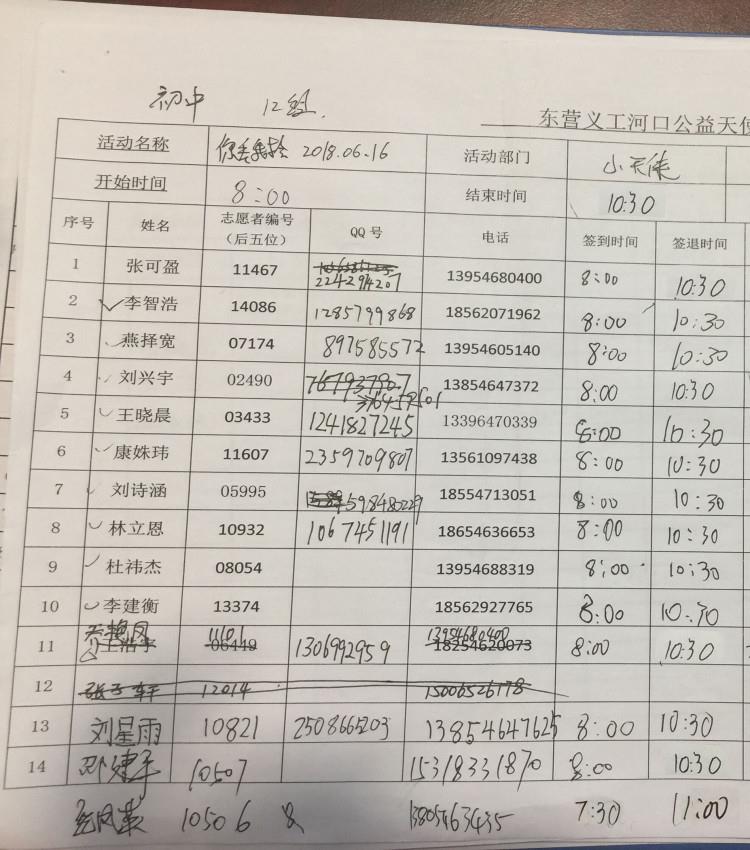 初中 12组.
东营义工河口公益天使
活动名称 2018.06.16 活动部门 小天使
开始时间 8:00 结束时间 10:30
序号 姓名 志愿者编号（后五位） QQ 号 电话 签到时间 签退时间
1 张可盈 11467 2242914207 13954680400 8:00 10:30
2 李智浩 14086 1285799868 18562071962 8:00 10:30
3 燕择宽 07174 897585572 13954605140 8:00 10:30
4 刘兴宇 02490 767937907 13854647372 8:00 10:30
5 王晓晨 03433 1241827245 13396470339 8:00 10:30
6 康姝玮 11607 2359709807 13561097438 8:00 10:30
7 刘诗涵 05995 18554713051 8:00 10:30
8 林立恩 10932 1067451191 18654636653 8:00 10:30
9 杜祎杰 08054 13954688319 8:00 10:30
10 李建衡 13374 18562927765 8:00 10:30
11601 13954680400
11 06449 1306992959 18254620073 8:00 10:30
12 12014 15006526178
13 刘星雨 10821 2508665203 13854647625 8:00 10:30
14 10507 15318331870 8:00 10:30
10506 13805463435 7:30 11:00